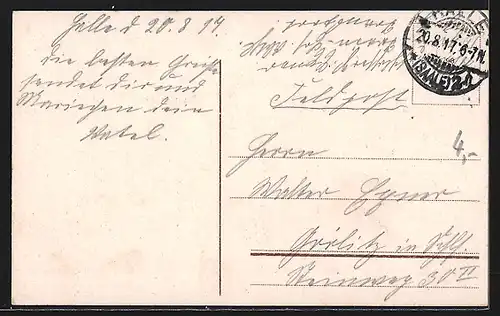 Halle d 20.8.17
die besten Grüße
sendet dir und
Mariechen dein
Vatel.
HALLE
20.8.17.6-7N.
*(SAALE)2
Feldpost
4,-
Herrn
Walter Exner
Görlitz in Schl.
Steinweg 30 II